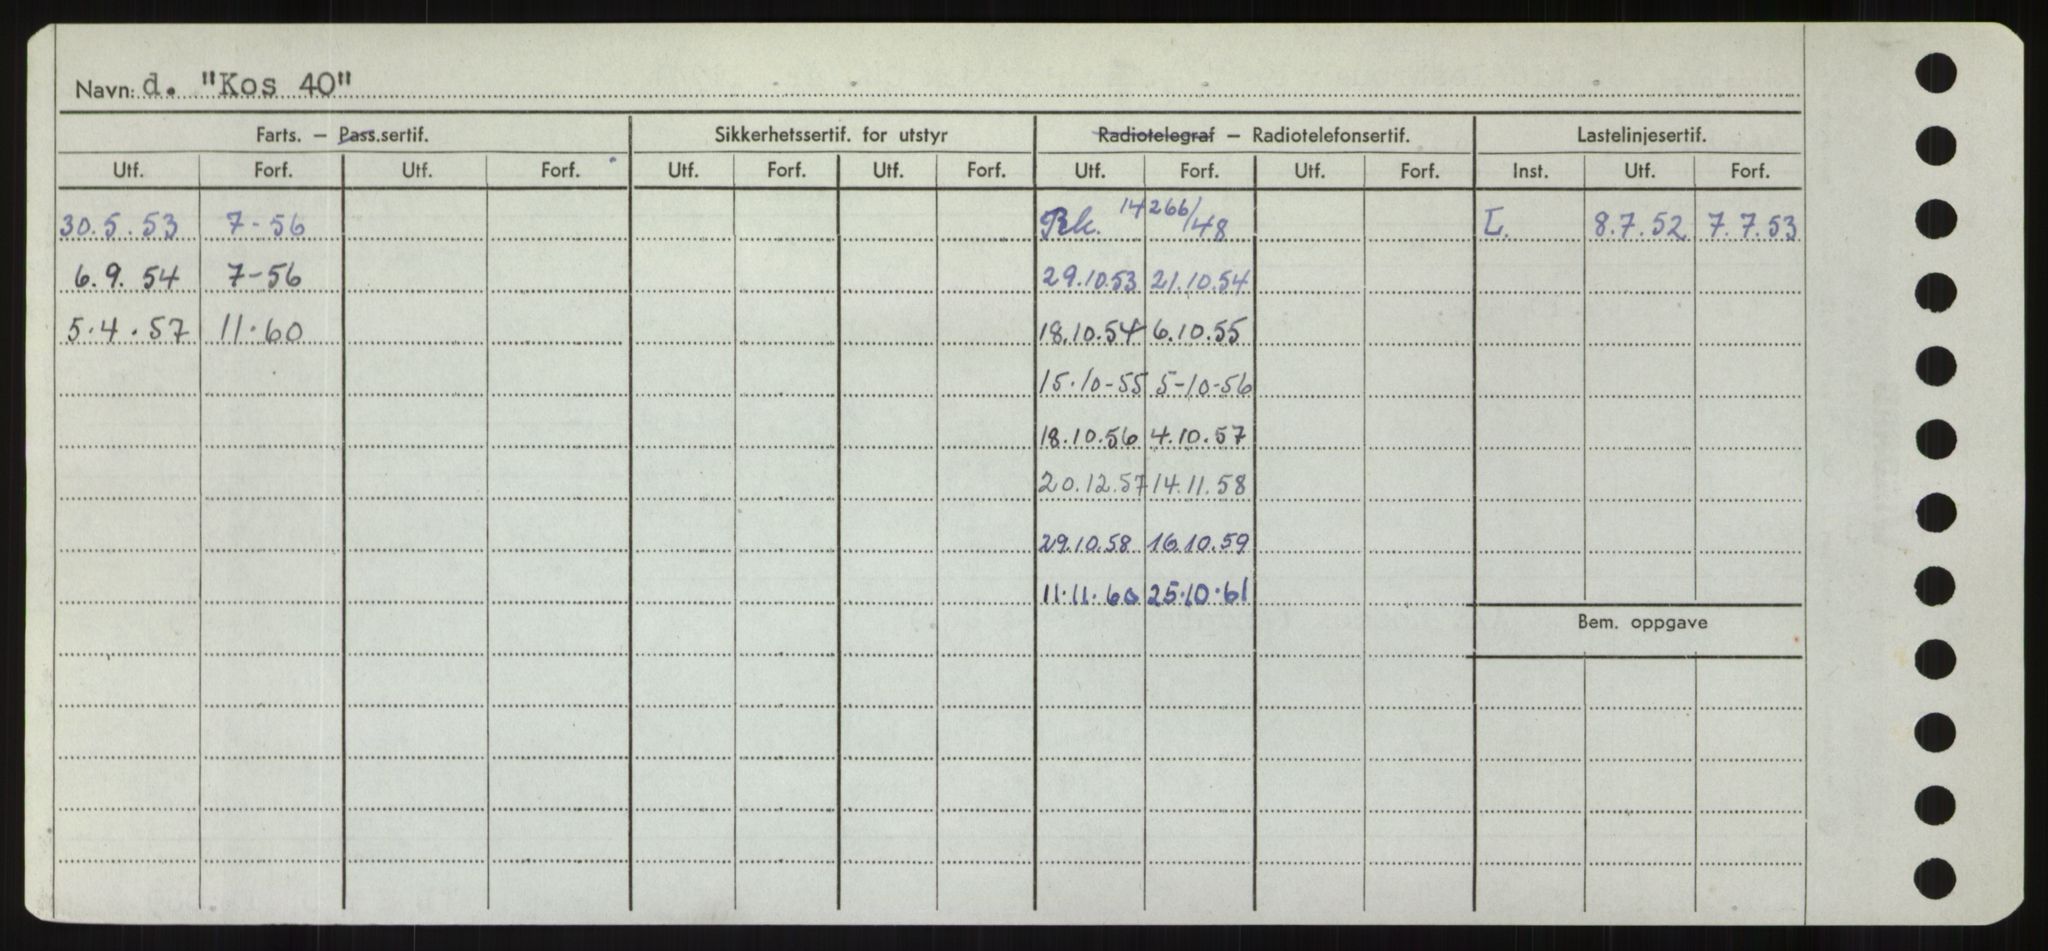 Navn: d. "Kos 40"
Farts. — Pass.sertif. Sikkerhetssertif. for utstyr Radiotelegraf — Radiotelefonsertif. Lastelinjesertif.
Utf. Forf. Utf. Forf. Utf. Forf. Utf. Forf. Utf. Forf. Utf. Forf. Inst. Utf. Forf.
30.5.53 7-56 Bk. 14266/48 I. 8.7.52 7.7.53
6.9.54 7-56 29.10.53 21.10.54
5.4.57 11.60 18.10.54 6.10.55
15.10-55 5-10-56
18.10.56 4.10.57
20.12.57 14.11.58
29.10.58 16.10.59
11.11.60 25.10.61
Bem. oppgave